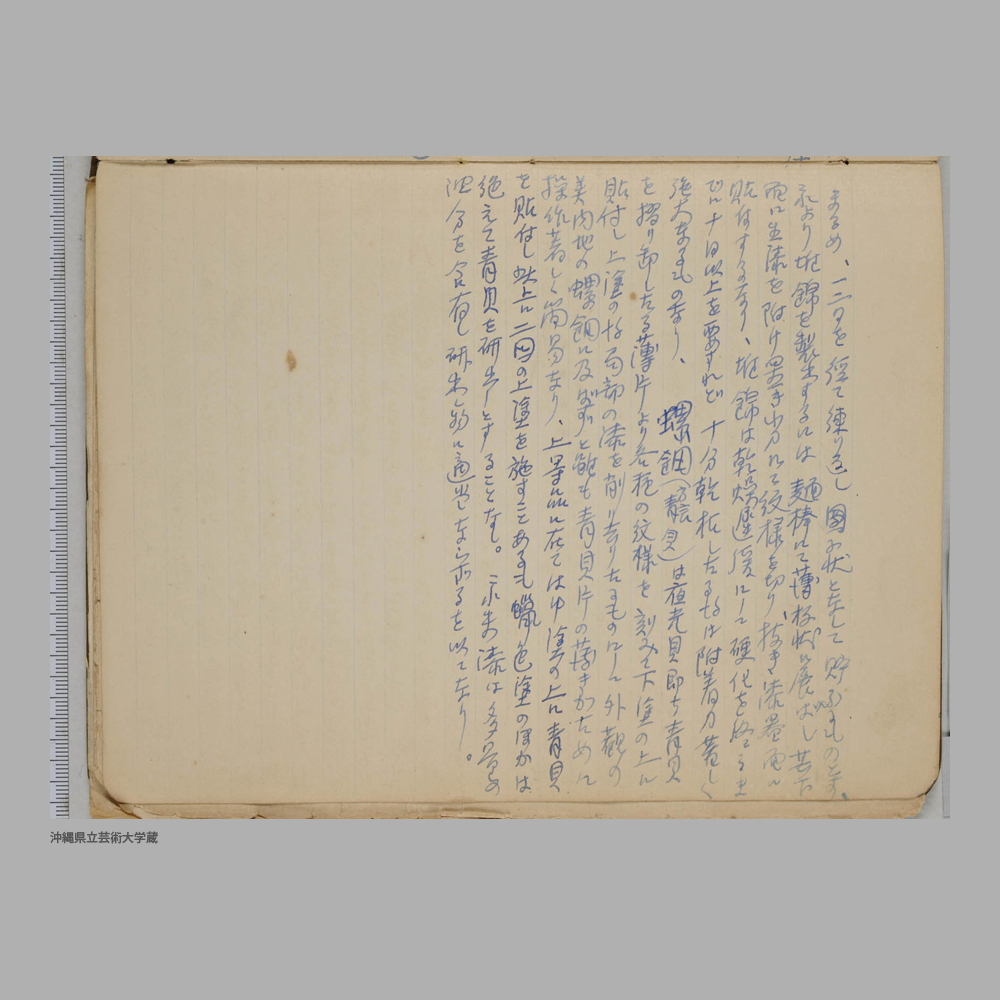 まるめ、一二日を経て練り返し団子状となして貯ふるものとす、
これより堆錦を製出するには麺棒にて薄板状に展ばし其下
面に生漆を附け異き小刀にて紋様を切り抜き漆器面に
貼付するなり、堆錦は乾燥遅緩にして硬化を終るま
でに十日以上を要すれど十分乾板したる時は附着力著しく
強大なるものなり、 螺鈿(青貝)は夜光貝即ち青貝
を摺り卸したる薄片より各種の紋様を刻みて下塗の上に
貼付し上塗の後局部の漆を削り去りたるものにして外観の
美内地の螺鈿に及ばずと雖も青貝片の薄きがために
操作著しく簡易なり、上等品に在ては中塗の上に青貝
を貼付し此上に二回の上塗を施すことあるも蠟色塗のほかは
絶えて青貝を研出しとすることなし。 これ朱漆は多量の
油分を含有し研出し物に適当ならざるを以てなり。
沖縄県立芸術大学蔵